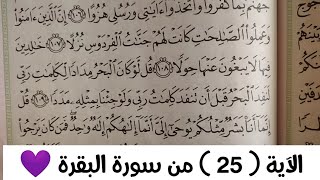 جَهَنَّمُ بِمَا كَفَرُوا وَاتَّخَذُوا آيَاتِي وَرُسُلِي هُزُوًا ١٠٦ إِنَّ الَّذِينَ آمَنُوا
وَعَمِلُوا الصَّالِحَاتِ كَانَتْ لَهُمْ جَنَّاتُ الْفِرْدَوْسِ نُزُلًا ١٠٧ خَالِدِينَ
فِيهَا لَا يَبْغُونَ عَنْهَا حِوَلًا ١٠٨ قُل لَّوْ كَانَ الْبَحْرُ مِدَادًا لِّكَلِمَاتِ رَبِّي
لَنَفِدَ الْبَحْرُ قَبْلَ أَن تَنفَدَ كَلِمَاتُ رَبِّي وَلَوْ جِئْنَا بِمِثْلِهِ مَدَدًا ١٠٩ قُلْ
إِنَّمَا أَنَا بَشَرٌ مِّثْلُكُمْ يُوحَى إِلَيَّ أَنَّمَا إِلَهُكُمْ إِلَهٌ وَاحِدٌ فَمَن كَانَ يَرْجُوا
الآية ( 25 ) من سورة البقرة 💜